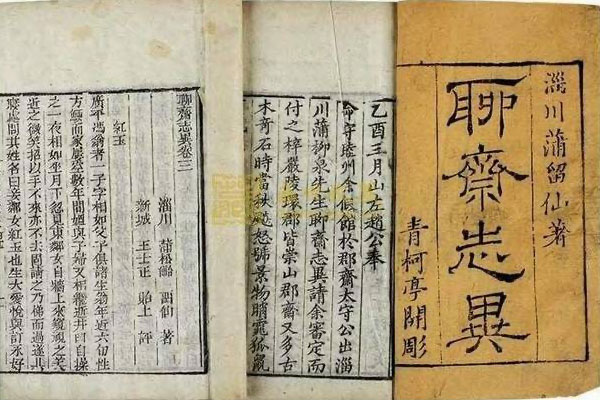 淄川蒲留仙著
聊齋志異
青柯亭開彫
乙酉三月山左趙公奉
命守睦州余假館於郡齋太守公出淄
川蒲柳泉先生聊齋志異請余審定而
付之梓嚴陵環郡皆崇山郡齋又多古
木奇石時當秋飈怒號景物睄窱狐鼠
聊齋志異卷三
淄川 蒲松齡 留仙 著
新城 王士正 貽上 評
紅玉
廣平馮翁者一子字相如父子俱諸生翁年近六旬性
方鯁而家屢空數年間媼與子婦又相繼逝井臼自操
之一夜相如坐月下忽見東鄰女自牆上來窺視之美
近之微笑招以手不來亦不去固請之乃梯而過遂共
寢處問其姓名曰妾鄰女紅玉也生大愛悅與訂永好